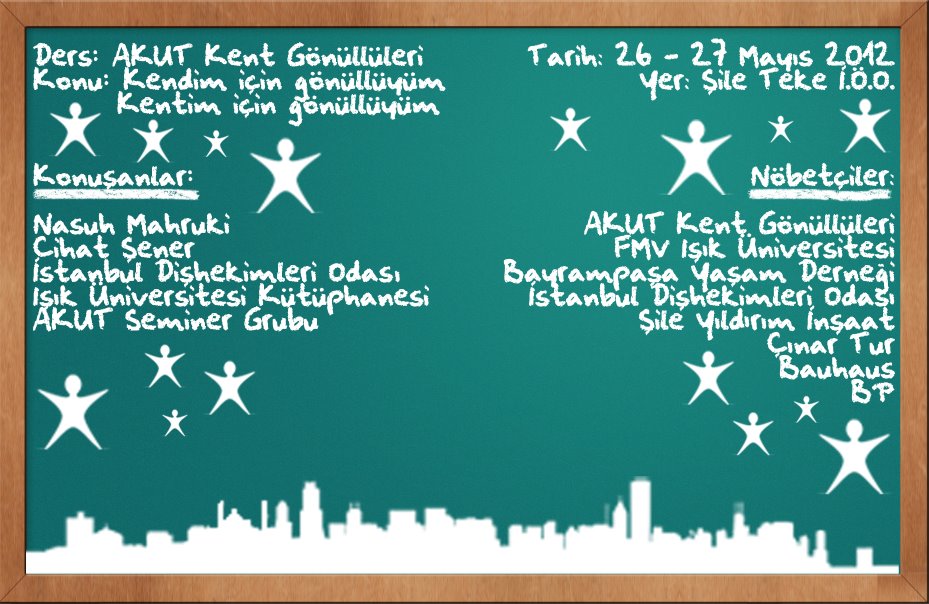 Ders: AKUT Kent Gönüllüleri
Konu: Kendim için gönüllüyüm
Kentim için gönüllüyüm
Tarih: 26 - 27 Mayıs 2012
Yer: Şile Teke İ.Ö.O.
Konuşanlar:
Nasuh Mahruki
Cihat Şener
İstanbul Dişhekimleri Odası
Işık Üniversitesi Kütüphanesi
AKUT Seminer Grubu
Nöbetçiler:
AKUT Kent Gönüllüleri
FMV Işık Üniversitesi
Bayrampaşa Yaşam Derneği
İstanbul Dişhekimleri Odası
Şile Yıldırım İnşaat
Çınar Tur
Bauhaus
BP